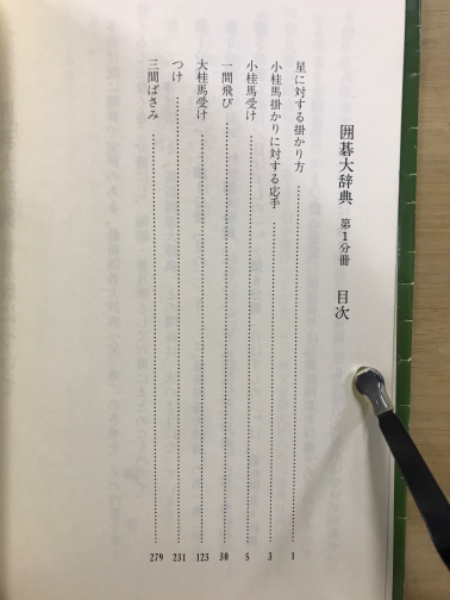 囲碁大辞典 第1分冊 目次
星に対する掛かり方 1
小桂馬掛かりに対する応手 3
小桂馬受け 5
一間飛び 30
大桂馬受け 123
つけ 231
三間ばさみ 279